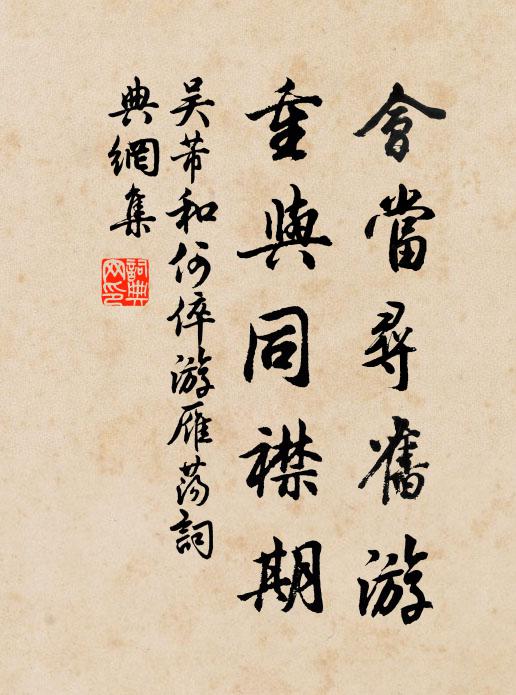 會當尋舊游
重與同襟期
吳芾和何倅游雁蕩詞
典網集
詞典網印